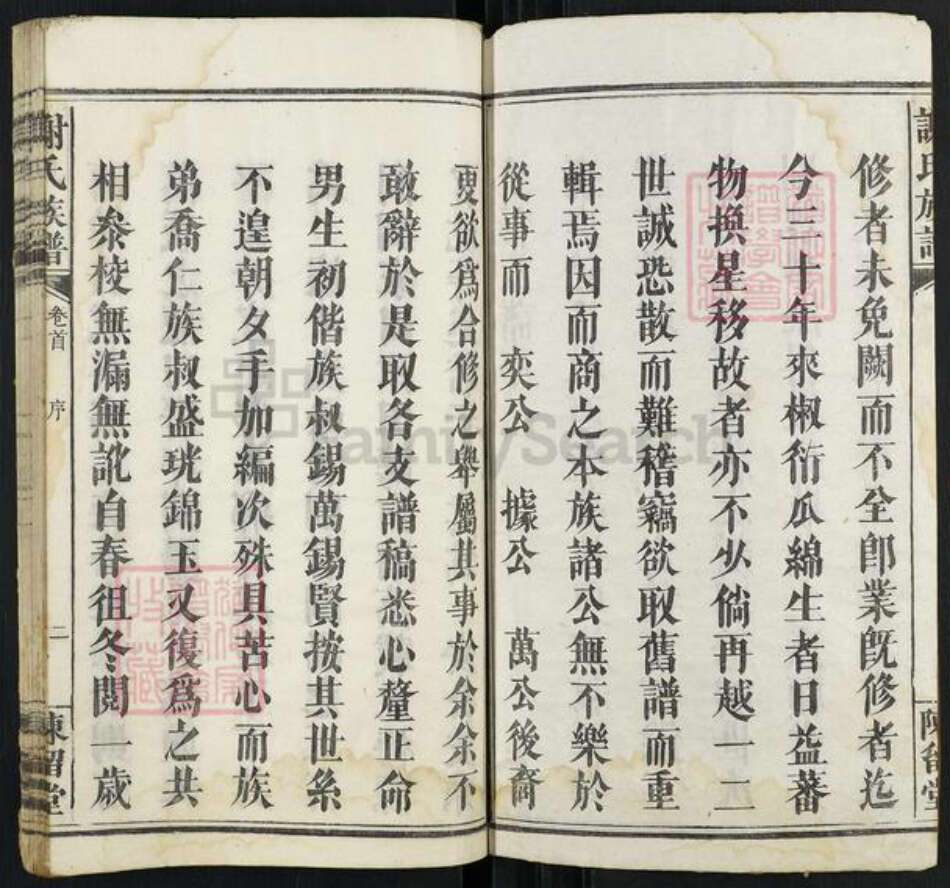 謝氏族譜
陳留堂
修者未免闕而不全郎業既修者迄
今三十年來椒衍瓜綿生者日益蕃
物換星移故者亦不少倘再越一二
世誠恐散而難稽竊欲取舊譜而重
輯焉因而商之本族諸公無不樂於
從事而 奕公 據公 萬公後裔
更欲爲合修之舉屬其事於余余不
敢辭於是取各支譜稿悉心釐正命
男生初偕族叔錫萬錫賢按其世系
不遑朝夕手加編次殊具苦心而族
弟喬仁族叔盛珖錦玉又復爲之共
相叅校無漏無訛自春徂冬閱一歲
謝氏族譜
卷首
序
二
陳留堂
FamilySearch